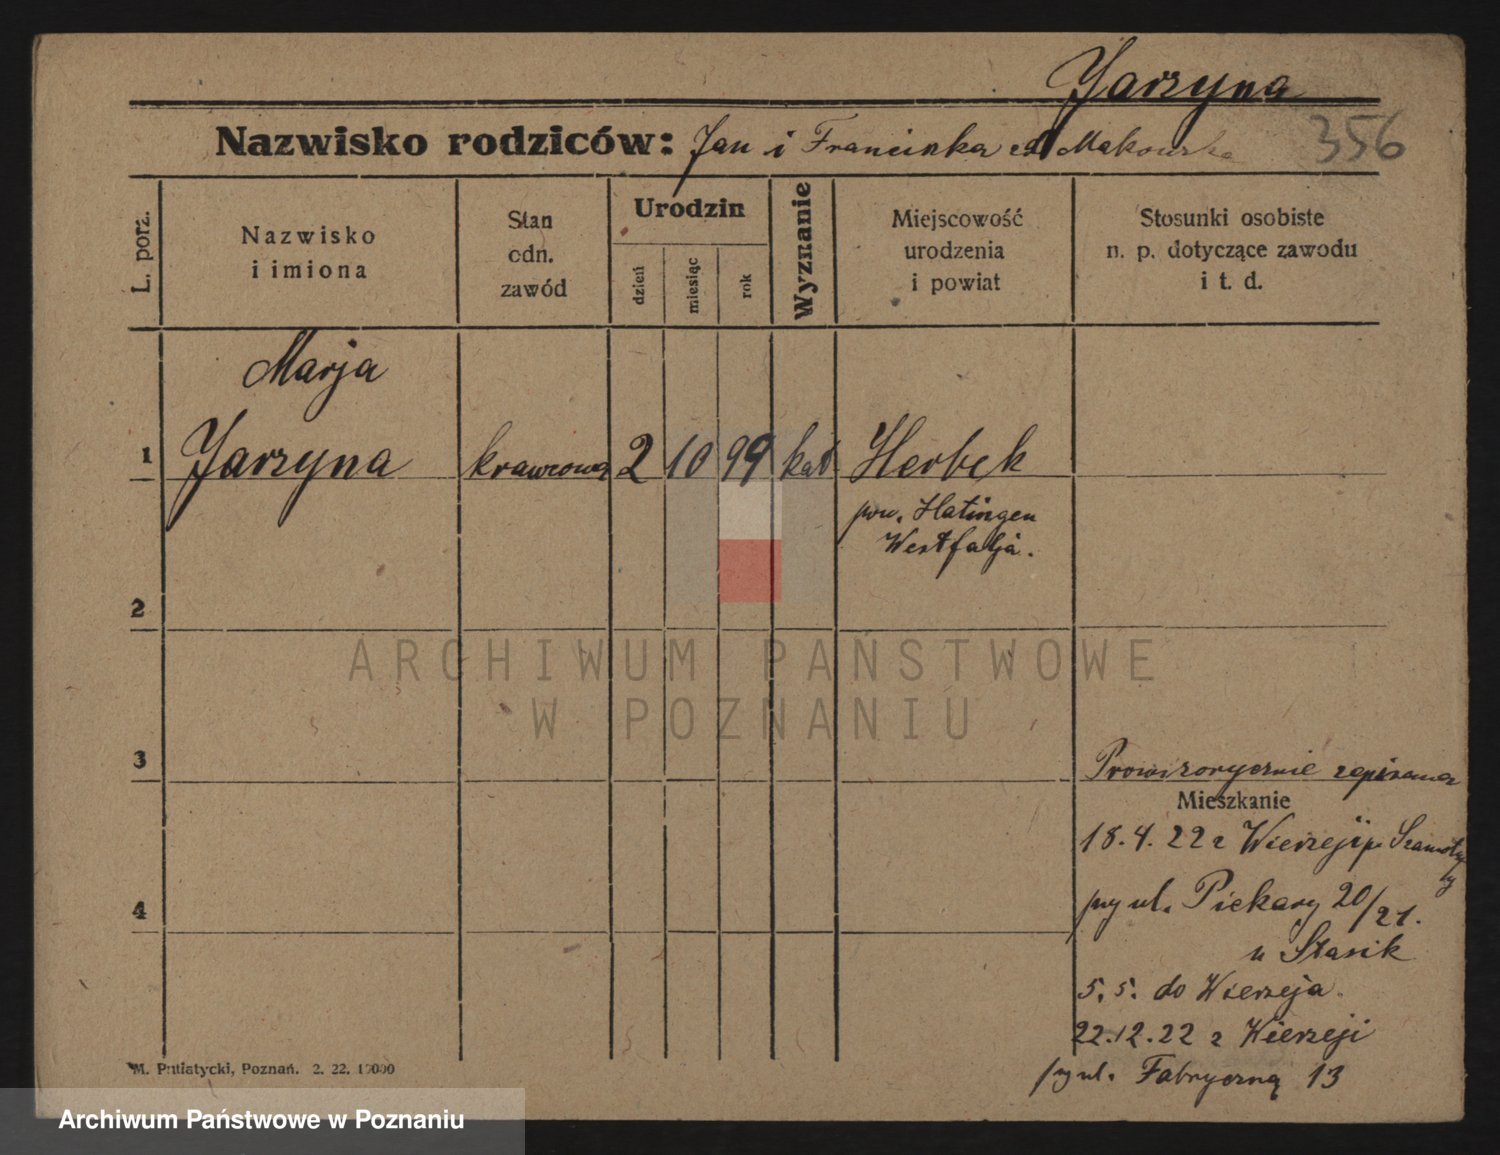 Jarzyna
Nazwisko rodziców: Jan i Franciszka Makowska
356
L. porz.
Nazwisko
i imiona
Stan
odn.
zawód
Urodzin
dzień
miesiąc
rok
Wyznanie
Miejscowość
urodzenia
i powiat
Stosunki osobiste
n. p. dotyczące zawodu
i t. d.
Marja
1 Jarzyna krawcowa 2 10 99 kat Herbek
pow. Hatingen
Westfalja.
2
ARCHIWUM PAŃSTWOWE
W POZNANIU
3
Prowizorycznie zapisana
Mieszkanie
18.4.22 z Wierzeji p. Szamotuły
4
przy ul. Piekary 20/21.
u Stasik
5.5. do Wierzeja.
22.12.22 z Wierzeji
przy ul. Fabryczną 13
M. Putiatycki, Poznań. 2. 22. 15000
Archiwum Państwowe w Poznaniu